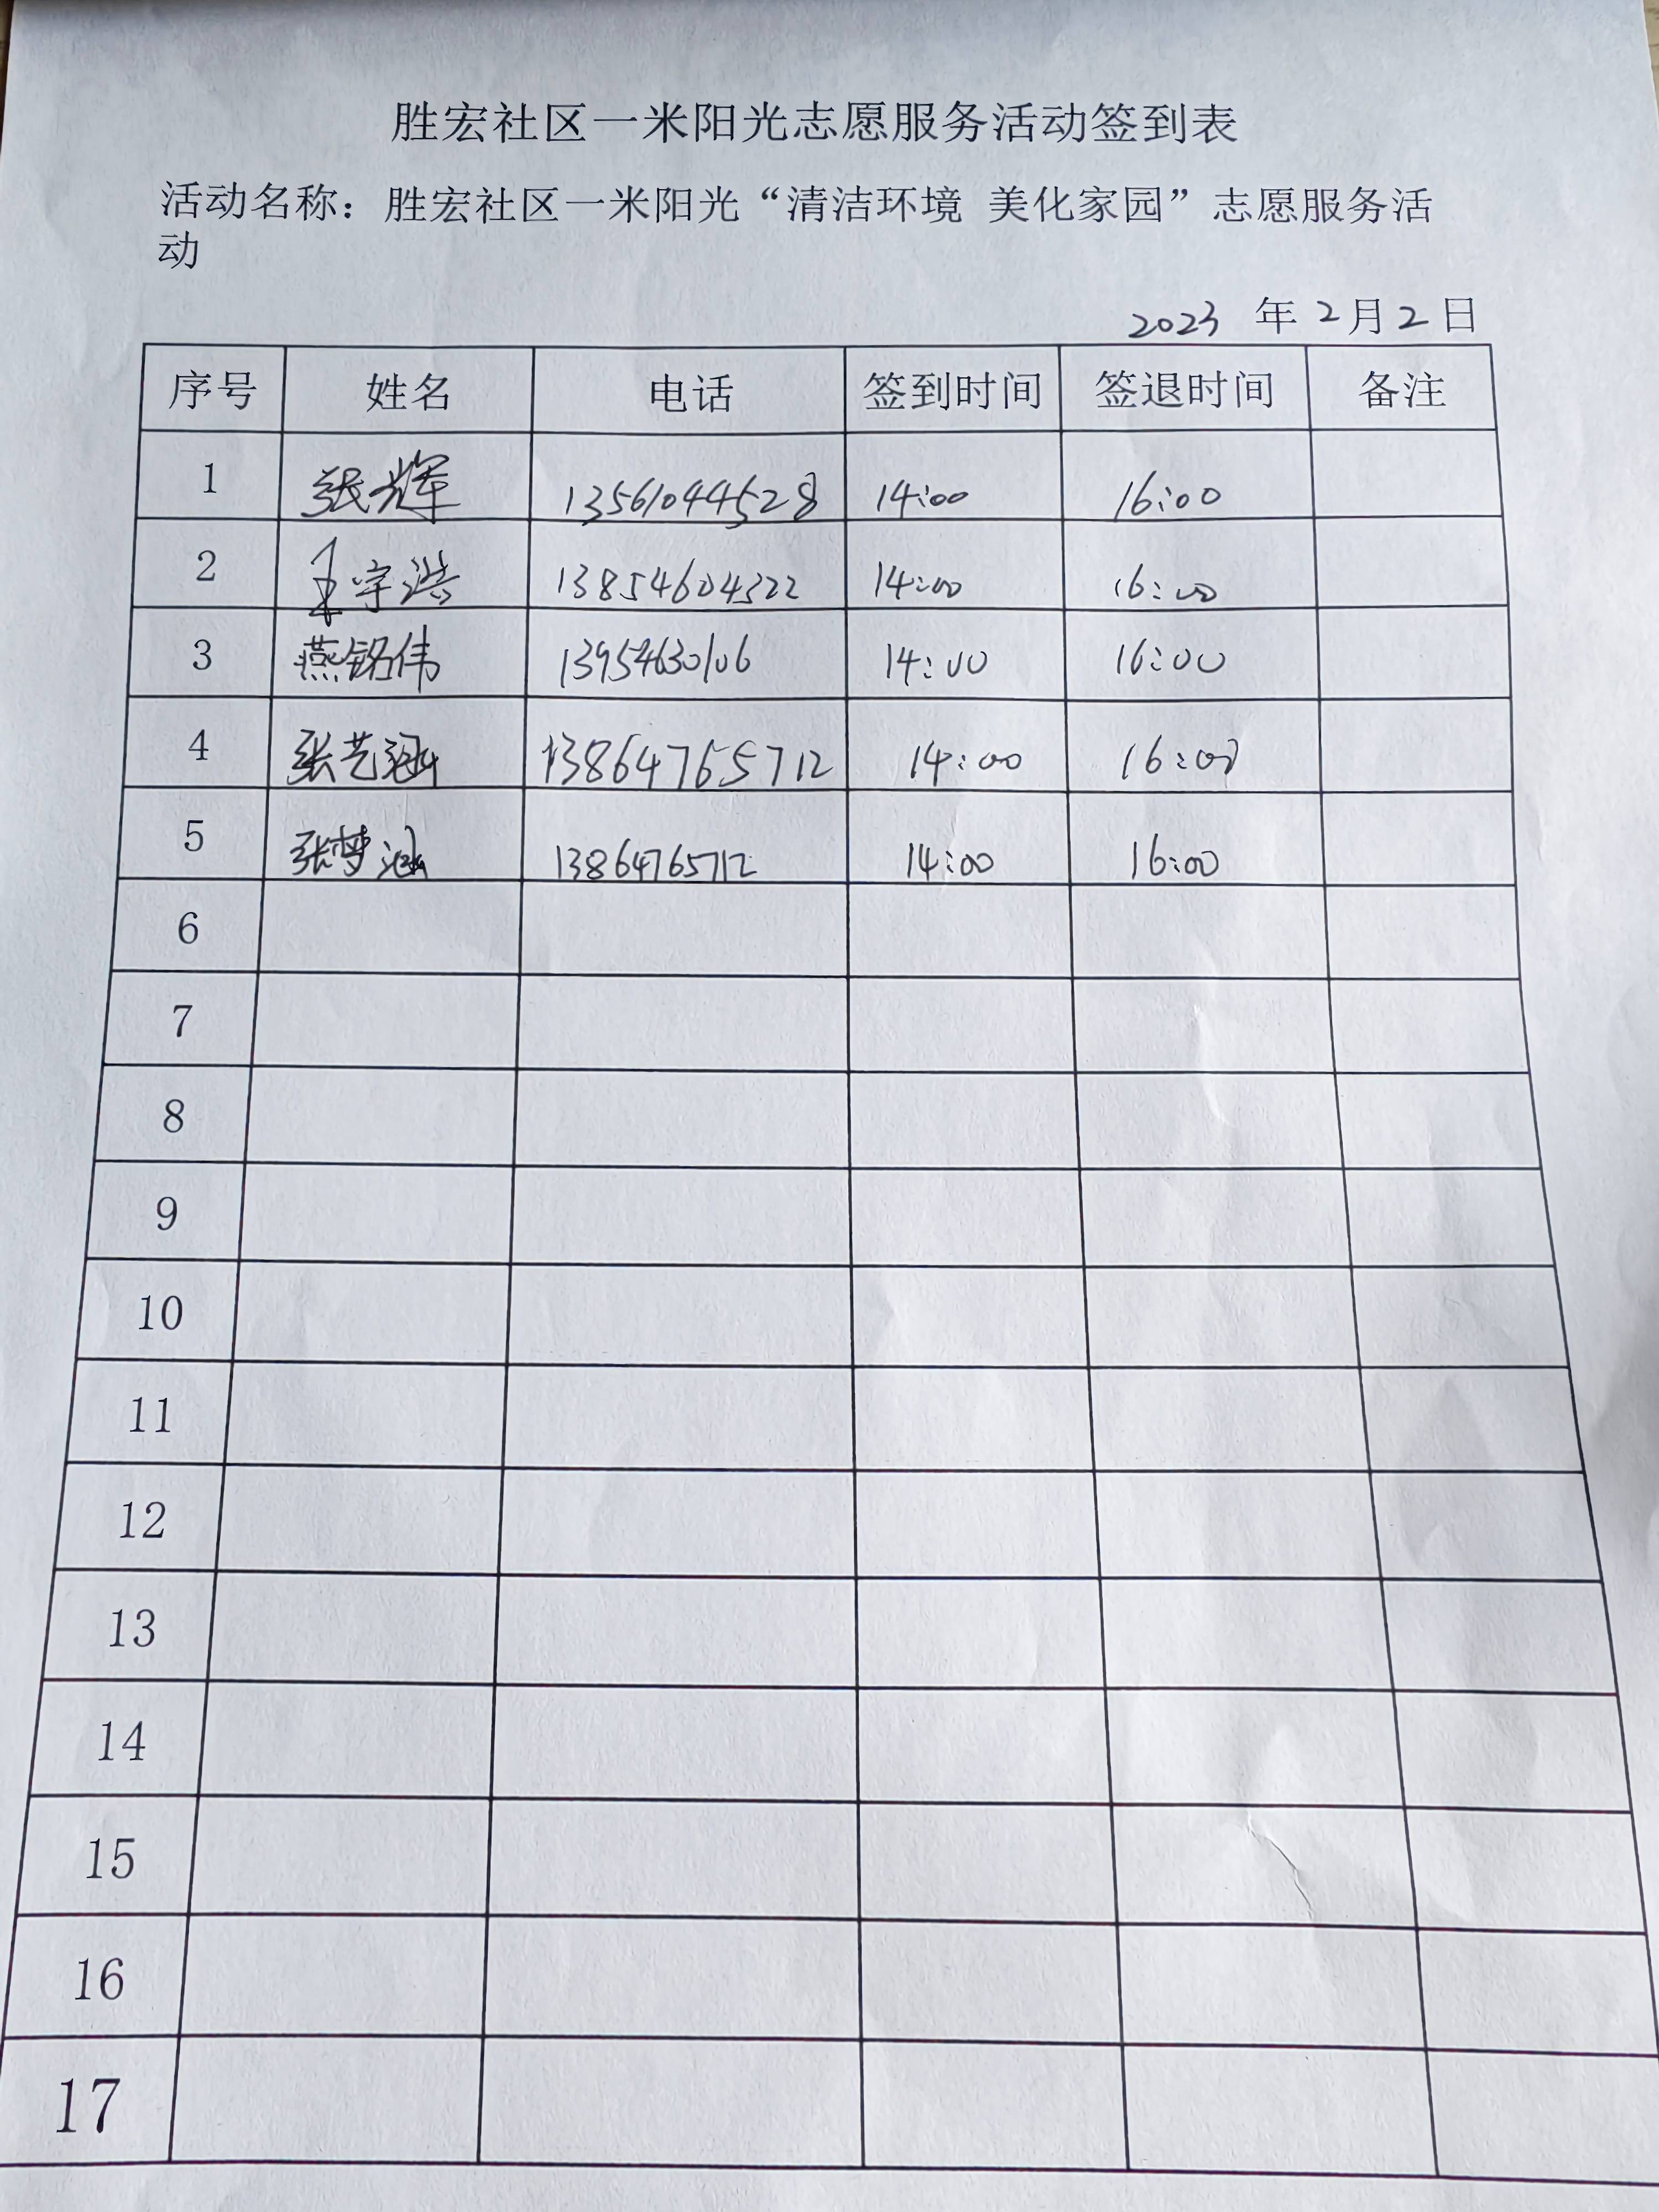 胜宏社区一米阳光志愿服务活动签到表
活动名称：胜宏社区一米阳光“清洁环境 美化家园”志愿服务活
动
2023 年 2 月 2 日
序号 姓名 电话 签到时间 签退时间 备注
1 张辉 13561044528 14:00 16:00
2 王宇浩 13854604322 14:00 16:00
3 燕铭伟 13954630106 14:00 16:00
4 张艺涵 13864765712 14:00 16:00
5 张梦涵 13864765712 14:00 16:00
6
7
8
9
10
11
12
13
14
15
16
17